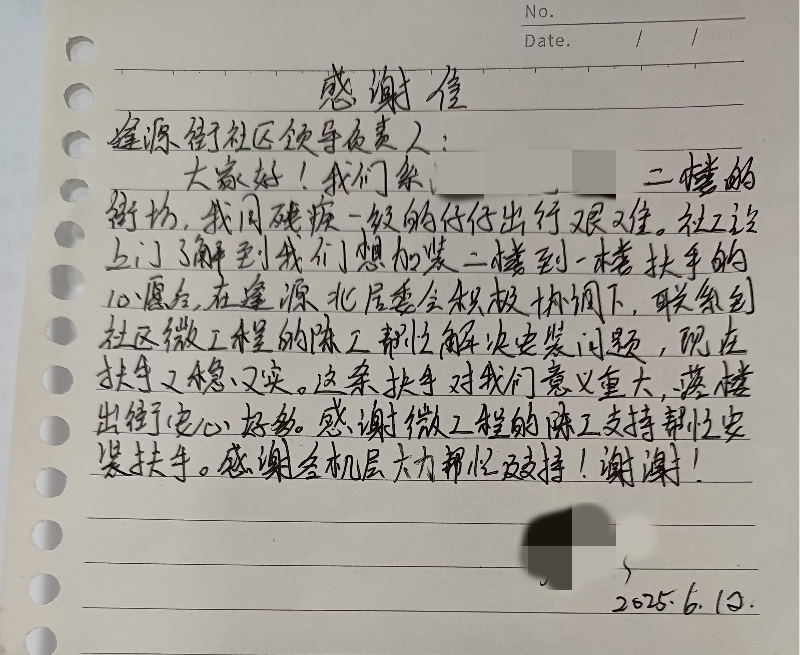 No.
Date. / /
感谢信
逢源街社区领导负责人：
大家好！我们系 二楼的
街坊，我同残疾一级的仔仔出行艰难。社工
上门了解到我们想加装二楼到一楼扶手的
心愿后，在逢源北居委会积极协调下，联系到
社区微工程的陈工帮忙解决安装问题，现在
扶手又稳又实。这条扶手对我们意义重大，落楼
出街安心好多。感谢微工程的陈工支持帮忙安
装扶手。感谢各机层大力帮忙及支持！谢谢！
2025.6.12.